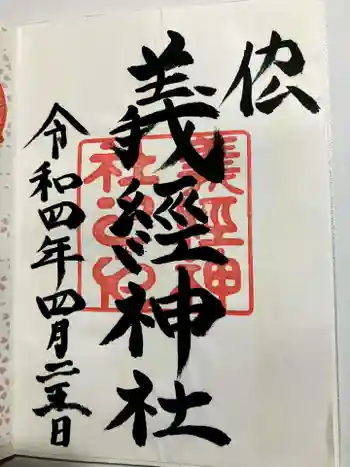 義經神社
令和四年四月二十五日
義經神
社之印